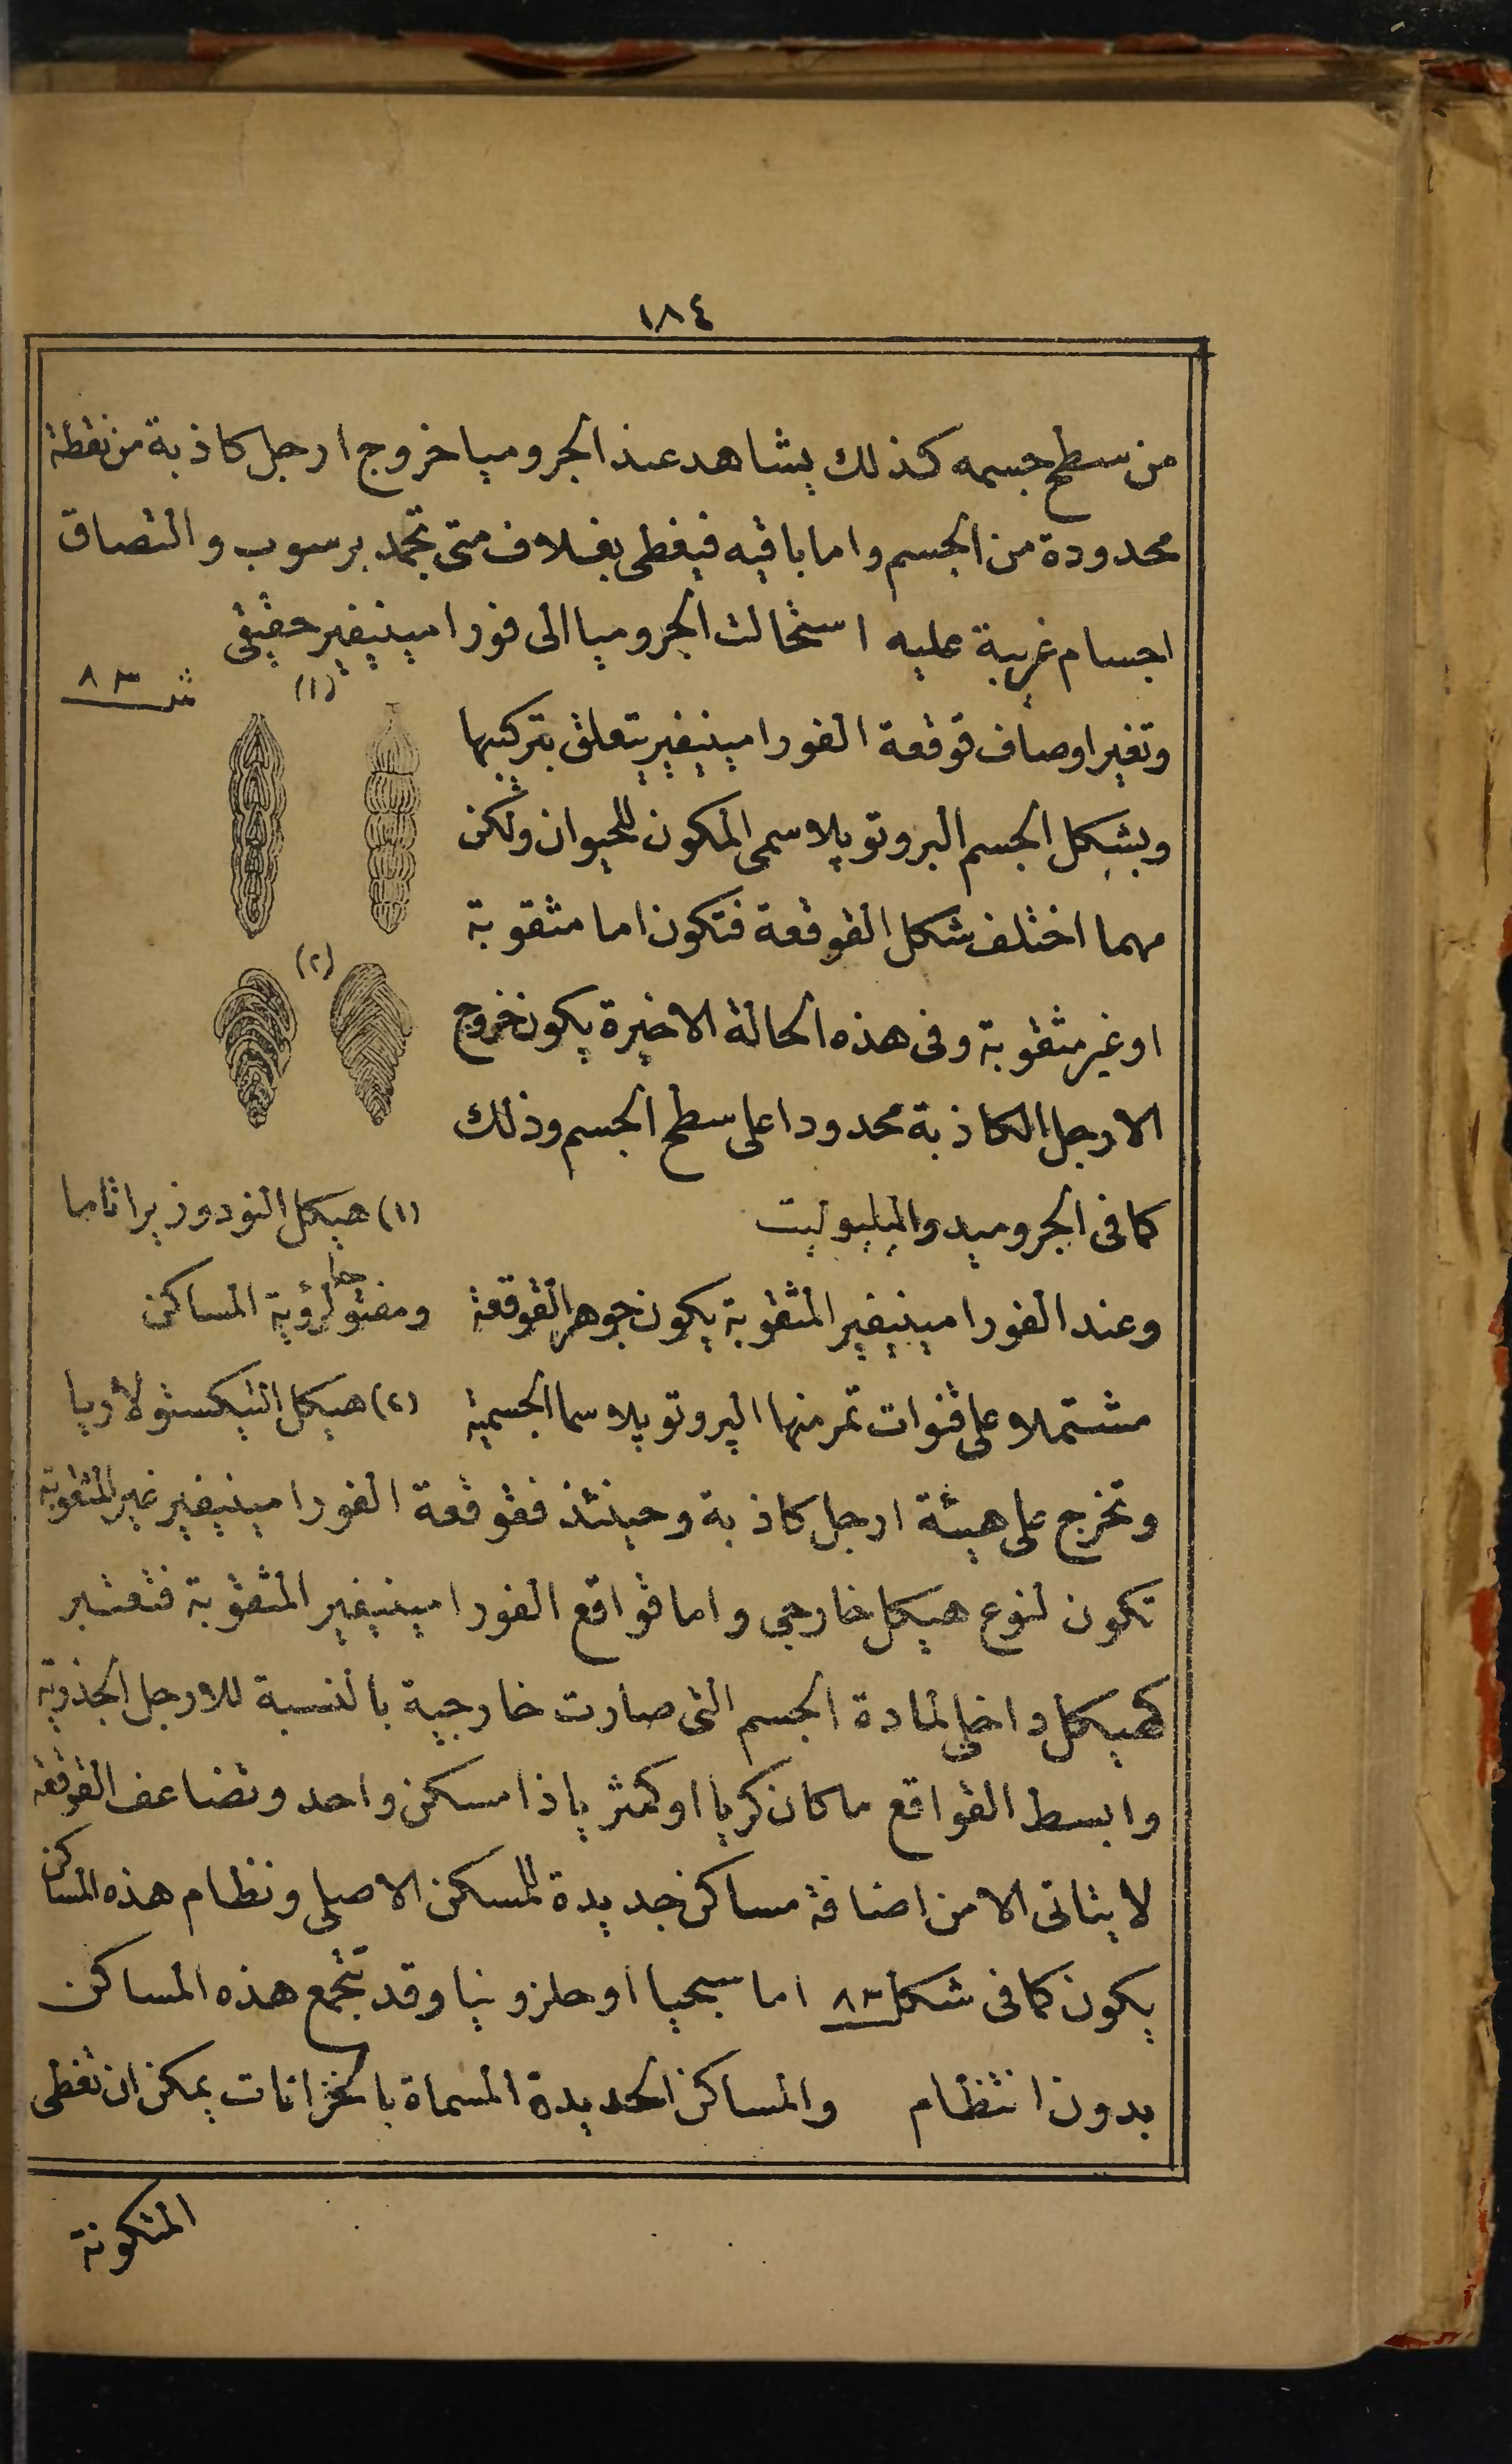 ١٨٤
من سطح جسمه كذلك يشاهد عند الجروميا خروج ارجل كاذبة من نقطة
محدودة من الجسم واما باقيه فيغطى بغلاف متى تجمد برسوب والتصاق
اجسام غريبة عليه استحالت الجروميا الى فورامينيفير حقيقى
ش ٨٣
(١)
وتغير اوصاف قوقعة الفورامينيفير يتعلق بتركيبها
وبشكل الجسم البروتوپلاسمى المكون للحيوان ولكن
مهما اختلف شكل القوقعة فتكون اما مثقوبة
(٢)
او غير مثقوبة وفى هذه الحالة الاخيرة يكون خروج
الارجل الكاذبة محدودا على سطح الجسم وذلك
كما فى الجروميد والميليوليت
(١) هيكل النودوزيرا تاما
وعند الفورامينيفير المثقوبة يكون جوهر القوقعة
ومفتوحا لرؤية المساكن
مشتملا على قنوات تمر منها البروتوپلاسما الجسمية
(٢) هيكل التيكستولاريا
وتخرج على هيئة ارجل كاذبة وحينئذ فقوقعة الفورامينيفير غير المثقوبة
تكون لنوع هيكل خارجى واما قواقع الفورامينيفير المثقوبة فتعتبر
كهيكل داخلى لمادة الجسم التى صارت خارجية بالنسبة للارجل الجذرية
وابسط القواقع ما كان كريا او كمثريا ذا مسكن واحد وتضاعف القوقعة
لا يتاتى الا من اضافة مساكن جديدة للمسكن الاصلى ونظام هذه المساكن
يكون كما فى شكل ٨٣ اما سبحيا او حلزونيا وقد تتجمع هذه المساكن
بدون انتظام والمساكن الجديدة المسماة بالخزانات يمكن ان تغطى
المتكونة